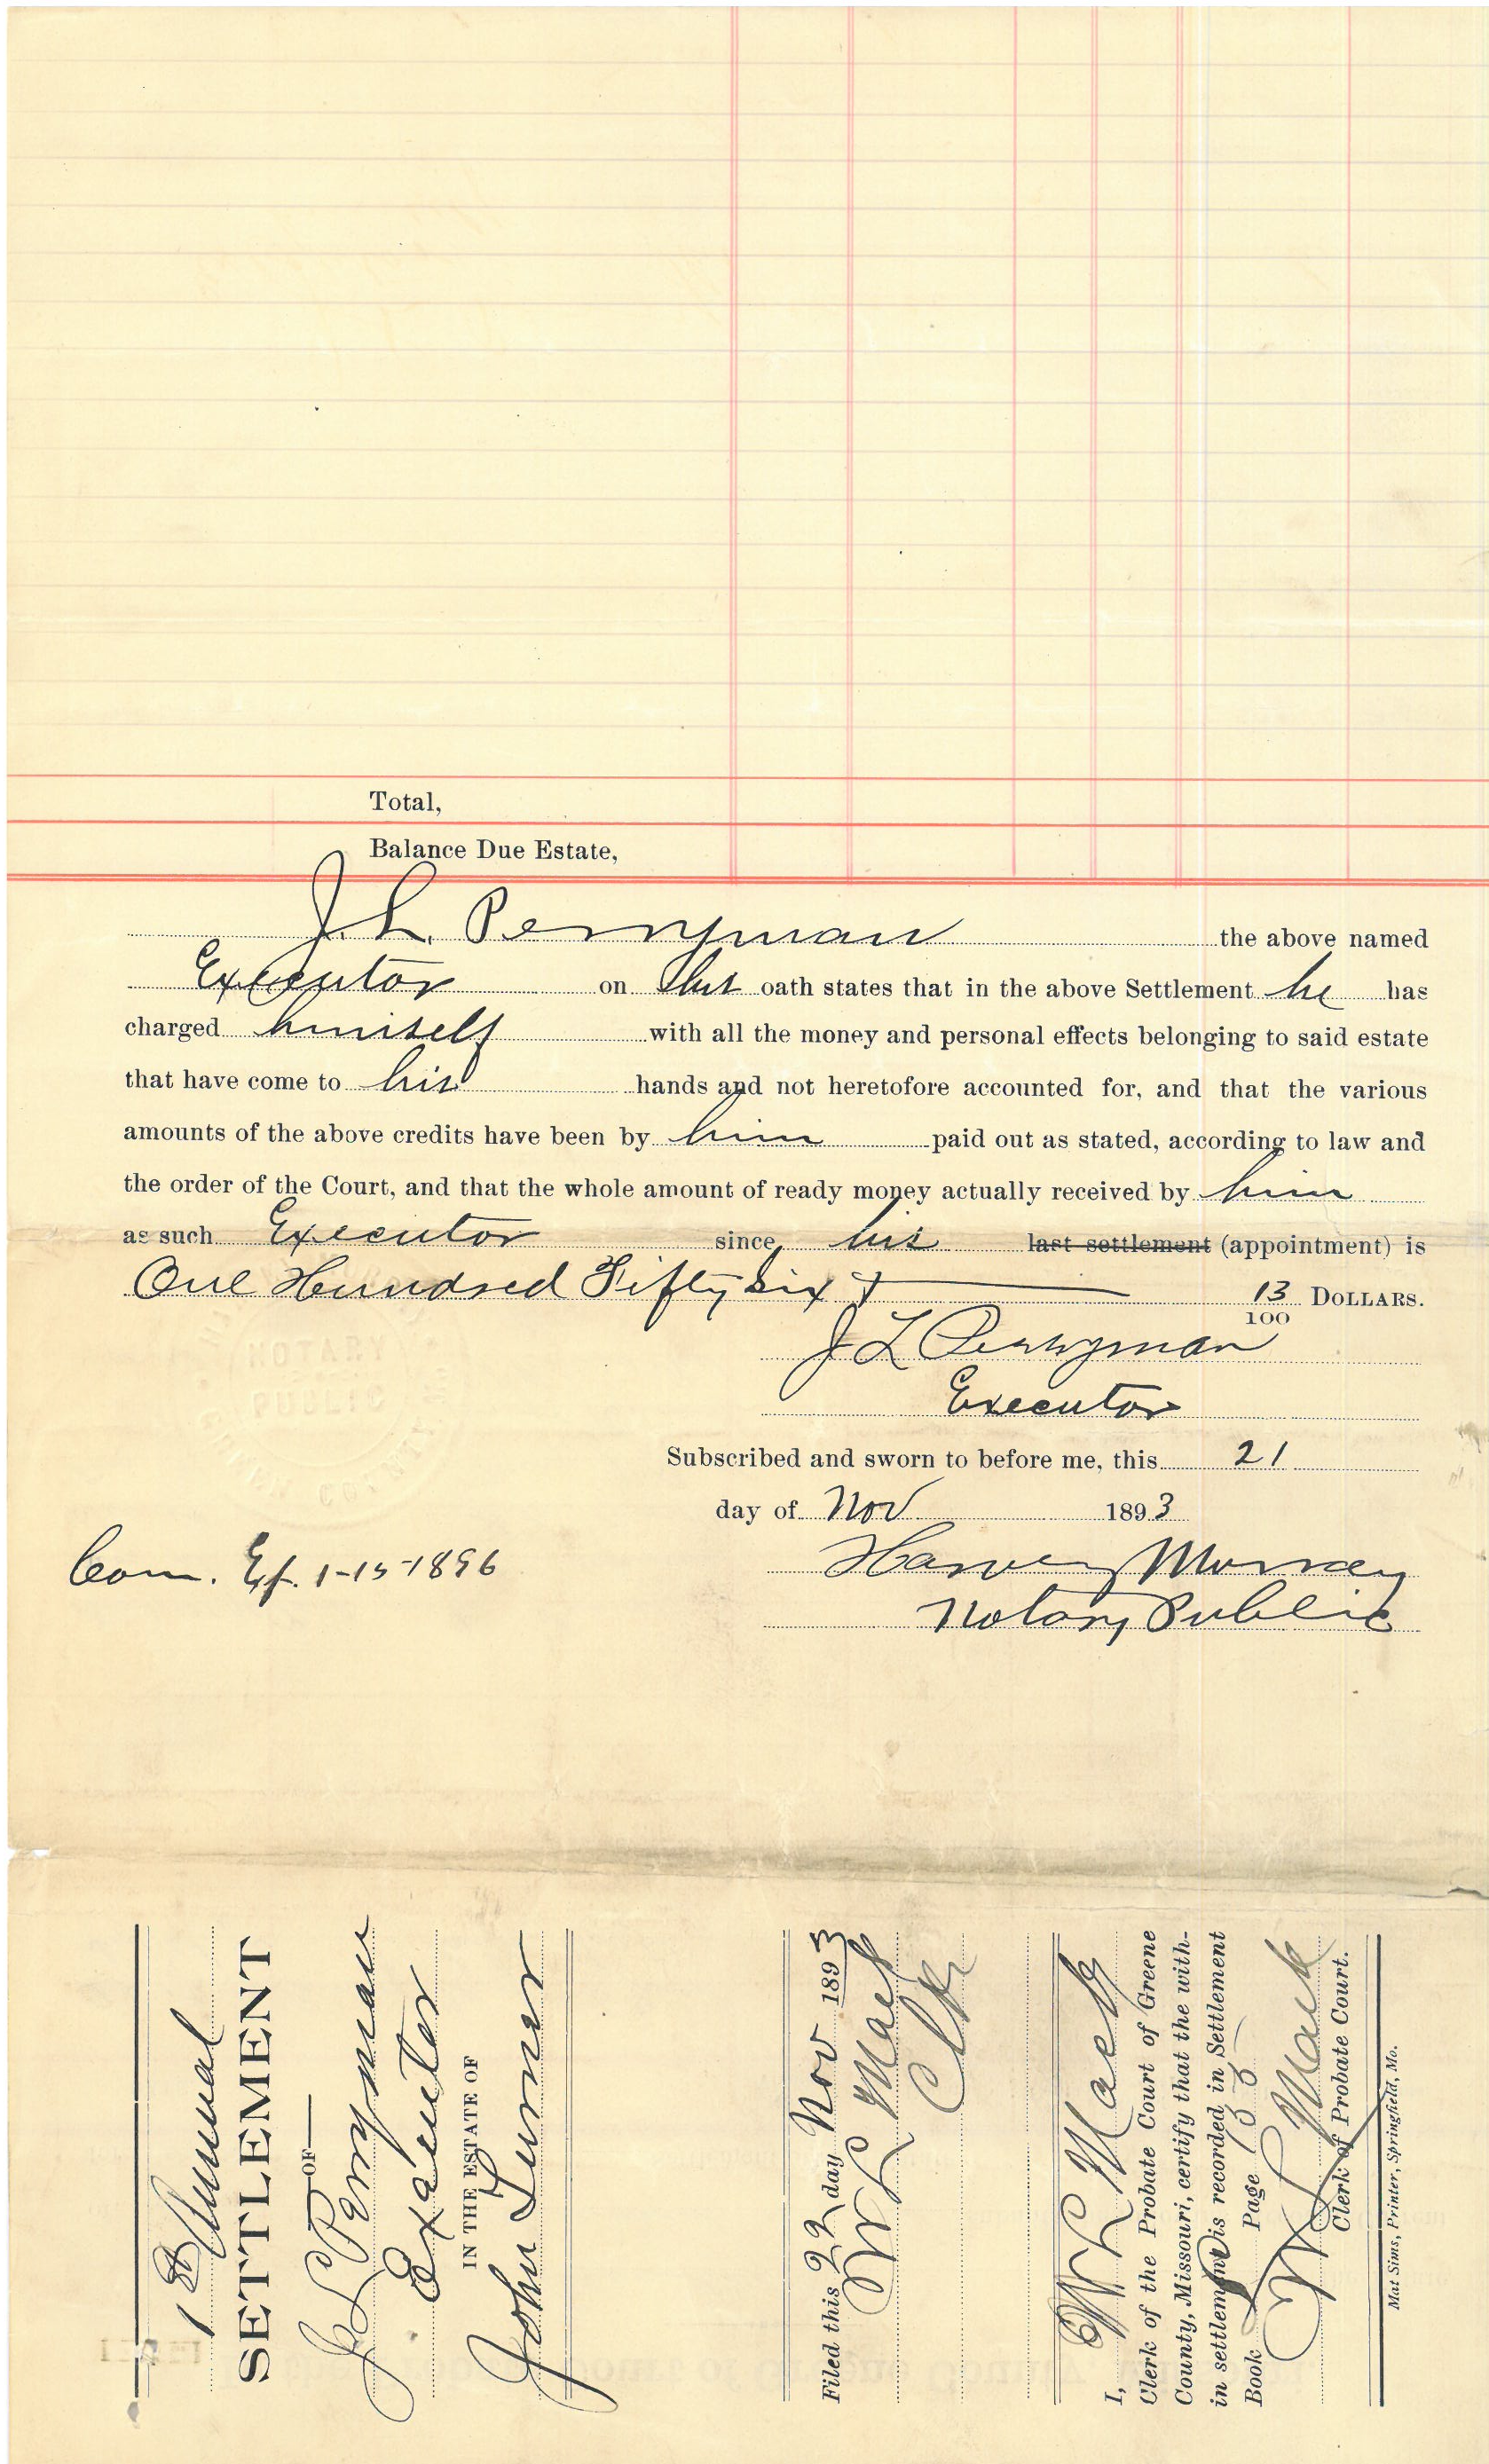 Total,
Balance Due Estate,
J. L. Perryman the above named
Executor on his oath states that in the above Settlement he has
charged himself with all the money and personal effects belonging to said estate
that have come to his hands and not heretofore accounted for, and that the various
amounts of the above credits have been by him paid out as stated, according to law and
the order of the Court, and that the whole amount of ready money actually received by him
as such Executor since his last settlement (appointment) is
One Hundred Fifty Six + 13/100 DOLLARS.
J L Perryman
Executor
Subscribed and sworn to before me, this 21
day of Nov 1893
Com. Ex. 1-15-1896
Harvey Murray
Notary Public
NOTARY
PUBLIC
1st Annual
SETTLEMENT
—OF—
J L Perryman
Executor
IN THE ESTATE OF
John Turner
Filed this 22 day Nov 1893
W L Mack
Clk
I, W L Mack
Clerk of the Probate Court of Greene
County, Missouri, certify that the with-
in settlement is recorded in Settlement
Book Page
W L Mack
Clerk of Probate Court.
Mat Sims, Printer, Springfield, Mo.